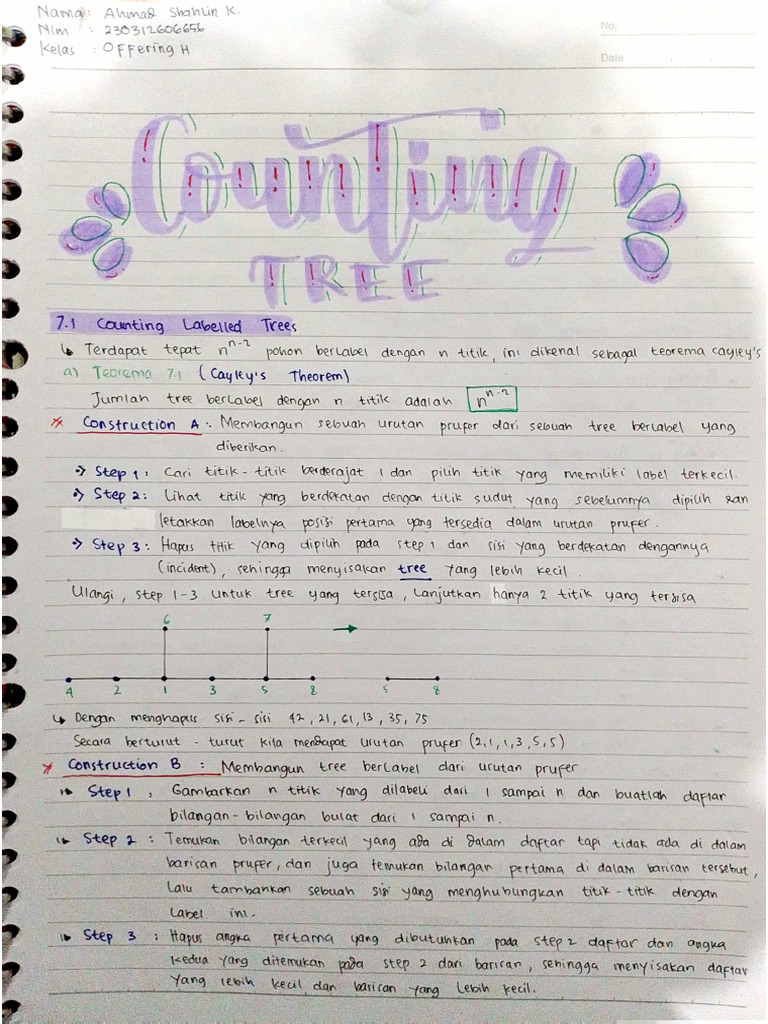 Nama : Ahmad Shahlin K.
NIM : 230312606656
Kelas : Offering H
No.
Date
Counting
TREE
7.1 Counting Labelled Trees
↳ Terdapat tepat n^(n-2) pohon berlabel dengan n titik, ini dikenal sebagai teorema cayley's
a) Teorema 7.1 (Cayley's Theorem)
Jumlah tree berlabel dengan n titik adalah n^(n-2)
* Construction A : Membangun sebuah urutan prufer dari sebuah tree berlabel yang
diberikan.
→ Step 1 : Cari titik-titik berderajat 1 dan pilih titik yang memiliki label terkecil.
→ Step 2 : Lihat titik yang berdekatan dengan titik sudut yang sebelumnya dipilih dan
letakkan labelnya posisi pertama yang tersedia dalam urutan prufer.
→ Step 3 : Hapus titik yang dipilih pada step 1 dan sisi yang berdekatan dengannya
(incident), sehingga menyisakan tree yang lebih kecil.
Ulangi, step 1-3 untuk tree yang tersisa, Lanjutkan hanya 2 titik yang tersisa
6 7 →
4 2 1 3 5 8 5 8
↳ Dengan menghapus sisi-sisi 42, 21, 61, 13, 35, 75
Secara berturut-turut kita mendapat urutan prufer (2,1,1,3,5,5)
* Construction B : Membangun tree berlabel dari urutan prufer
Step 1 : Gambarkan n titik yang dilabeli dari 1 sampai n dan buatlah daftar
bilangan-bilangan bulat dari 1 sampai n.
Step 2 : Temukan bilangan terkecil yang ada di dalam daftar tapi tidak ada di dalam
barisan prufer, dan juga temukan bilangan pertama di dalam barisan tersebut,
lalu tambahkan sebuah sisi yang menghubungkan titik-titik dengan
Label ini.
Step 3 : Hapus angka pertama yang dibutuhkan pada step 2 daftar dan angka
kedua yang ditemukan pada step 2 dari barisan, sehingga menyisakan daftar
yang lebih kecil dan barisan yang lebih kecil.